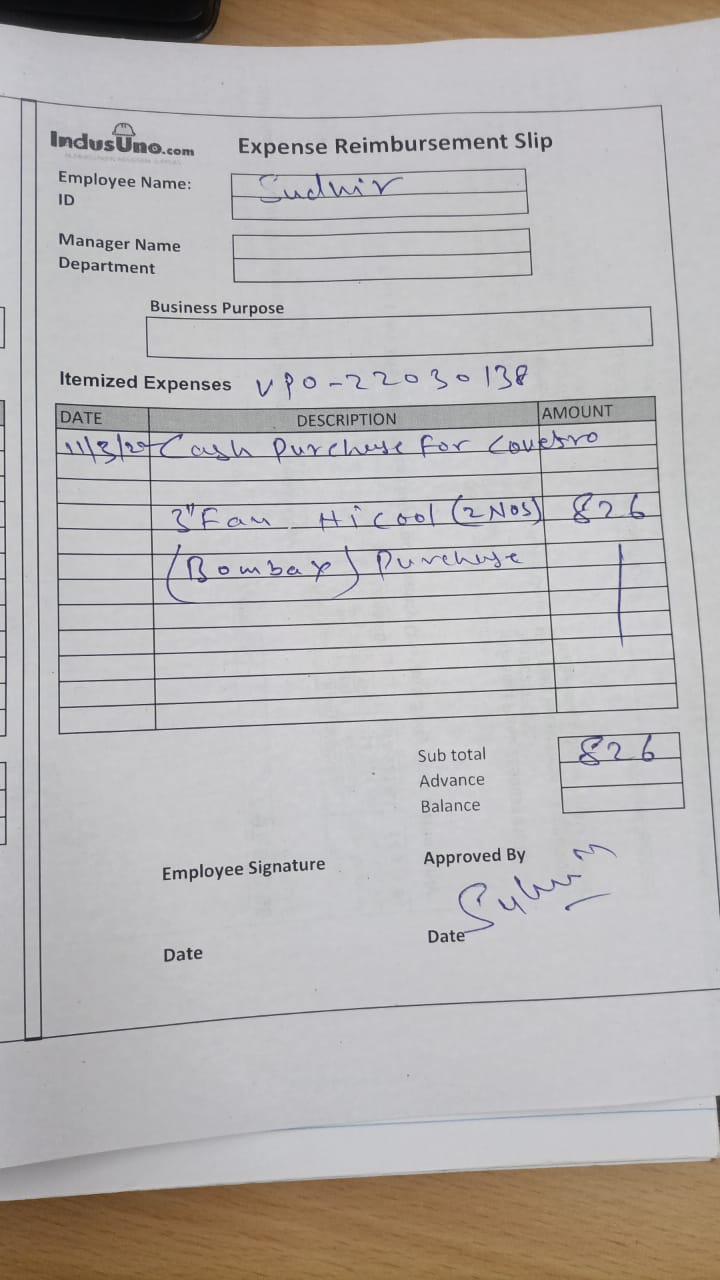 IndusUno.com
Expense Reimbursement Slip
Employee Name: Sudhir
ID
Manager Name
Department
Business Purpose
Itemized Expenses VPO-22030138
DATE DESCRIPTION AMOUNT
11/3/22 Cash Purchase For Covestro
3" Fan Hicool (2 Nos) 826
(Bombay) Purchase
Sub total 826
Advance
Balance
Employee Signature
Approved By
Date
Date